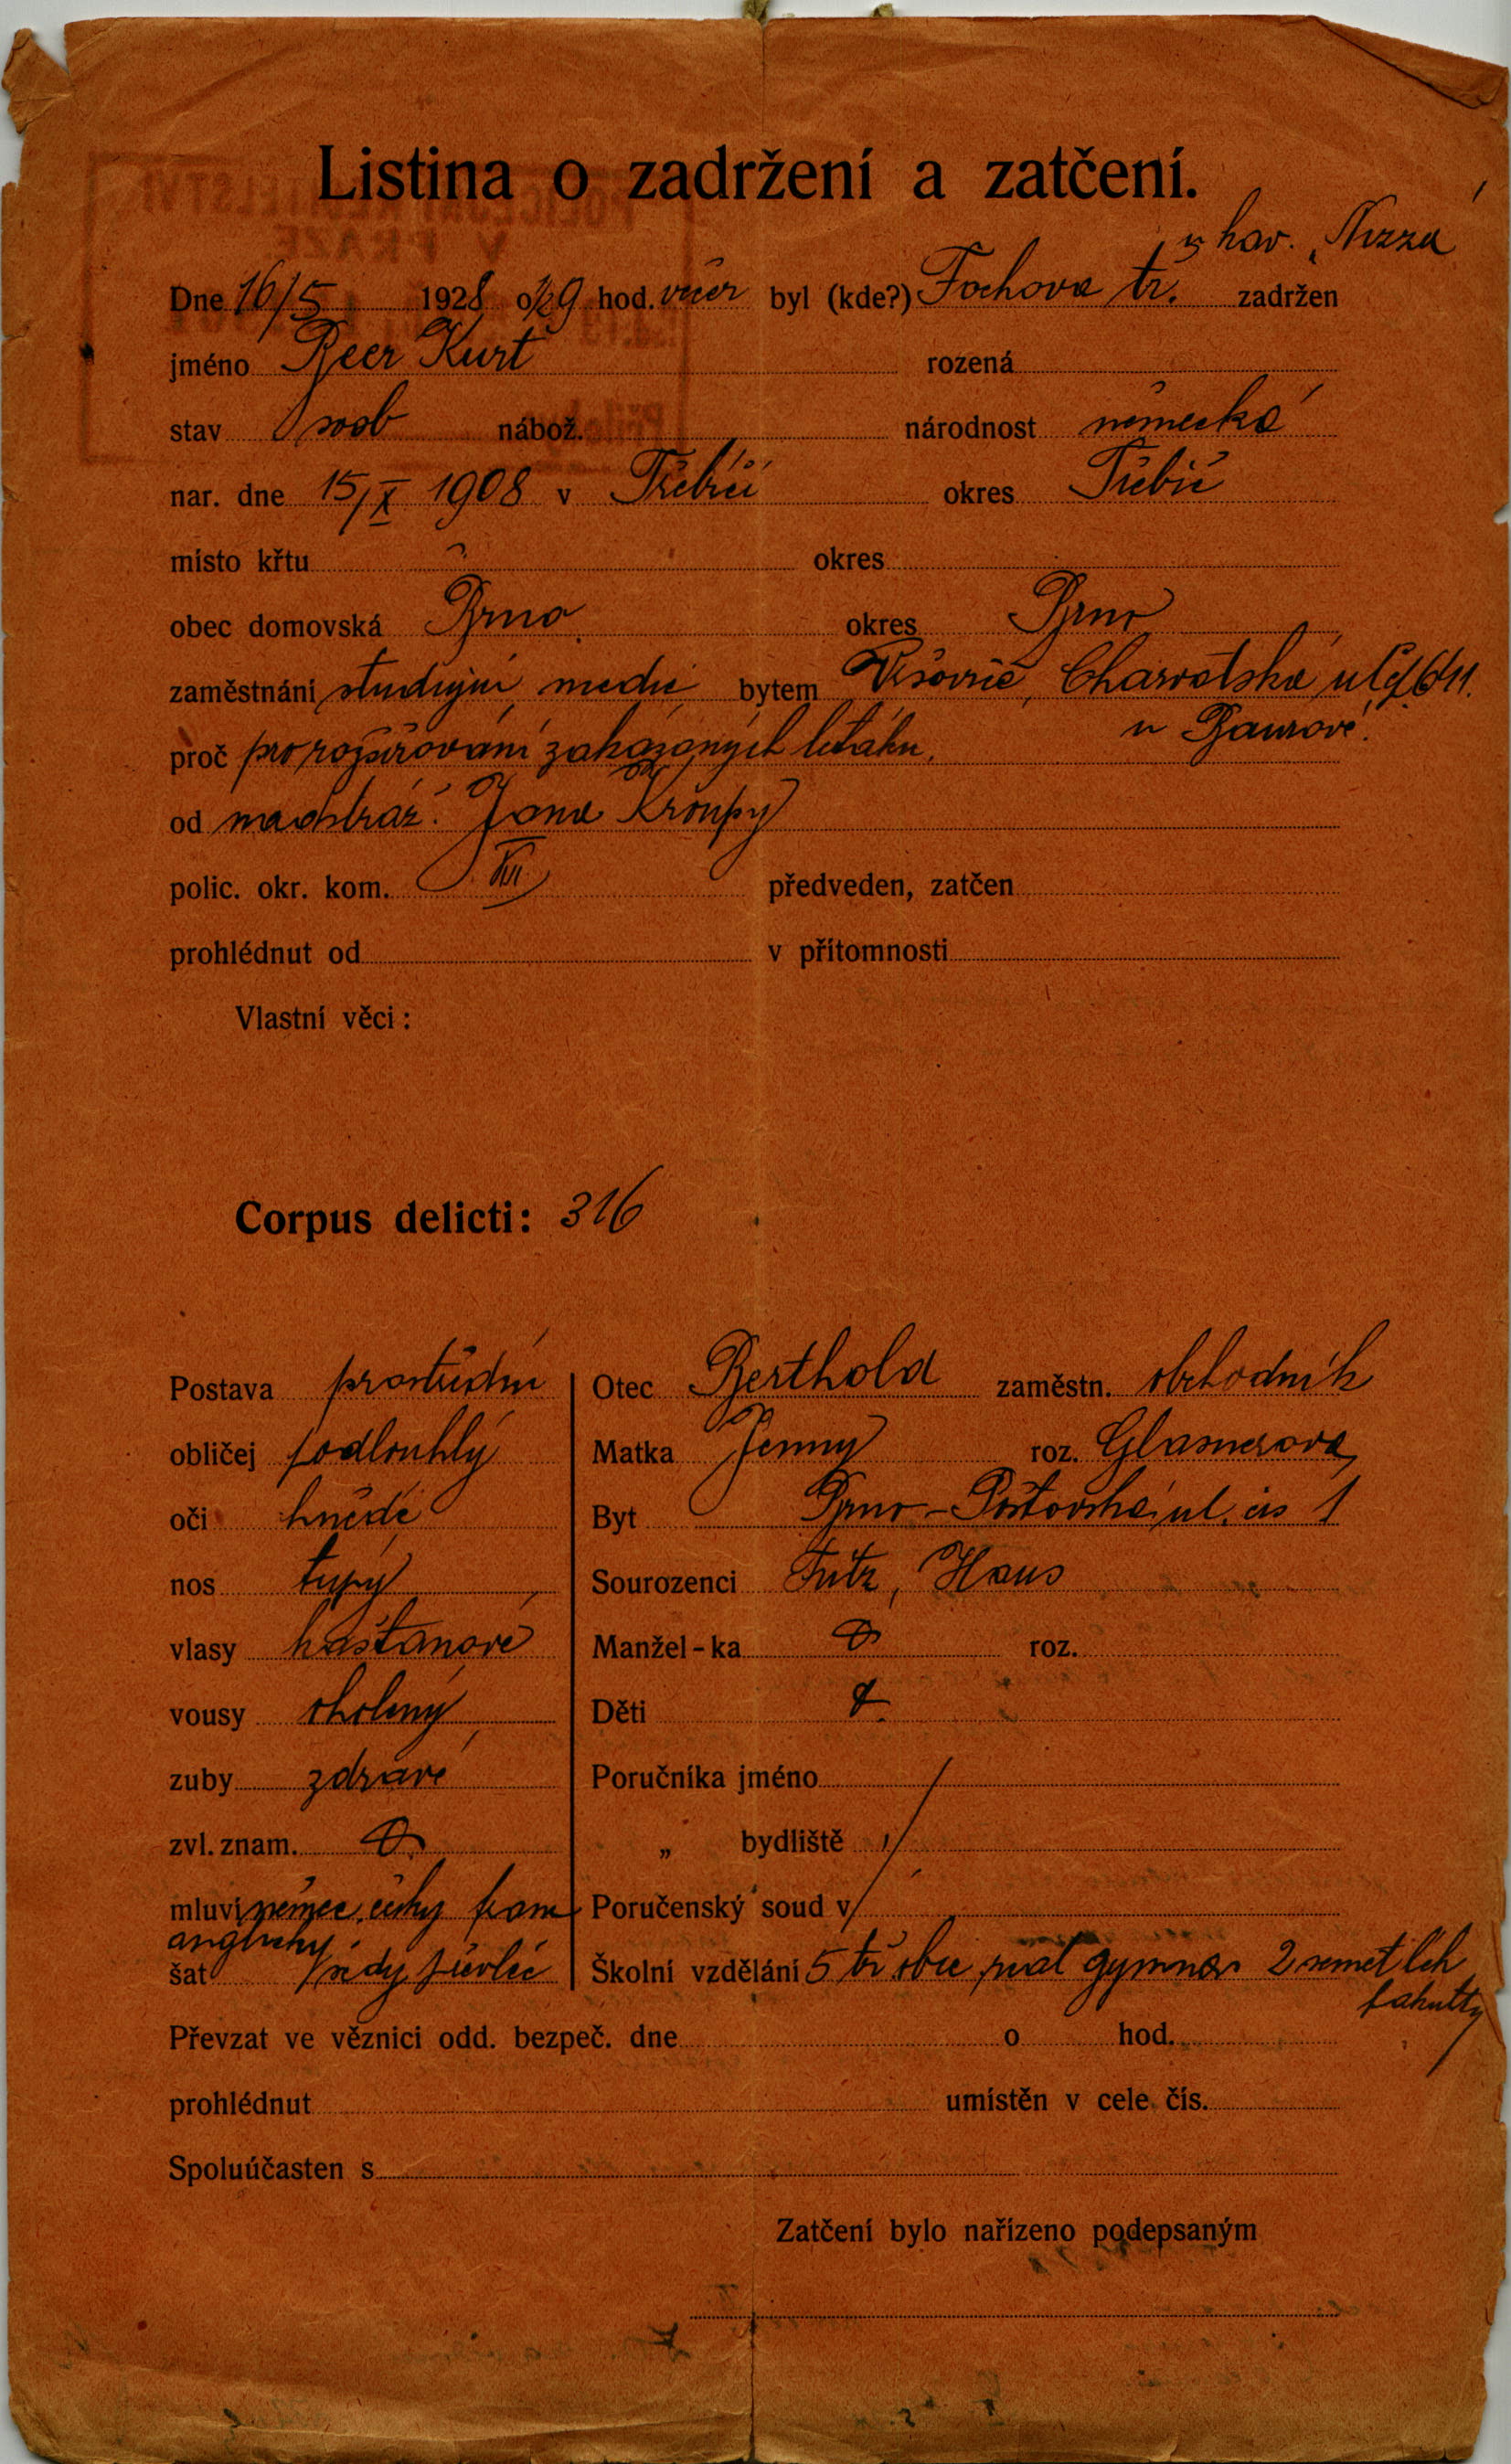 Listina o zadržení a zatčení.
u kav. „Nizza"
Dne 16/5 1928 o ½9 hod. večer byl (kde?) Fochova tř. zadržen
jméno Beer Kurt rozená
stav svob nábož. národnost německá
nar. dne 15/X 1908 v Třebíči okres Třebíč
místo křtu okres
obec domovská Brno okres Brno
zaměstnání studující medic bytem Vršovice, Charvátská ul.
u Baurové.
proč pro rozšiřování zakázaných letáků.
od nadstráž. Jana Kroupy
polic. okr. kom. předveden, zatčen
prohlédnut od v přítomnosti
Vlastní věci:
Corpus delicti: 316
Postava prostřední
obličej podlouhlý
oči hnědé
nos tupý
vlasy kaštanové
vousy oholený
zuby zdravé
zvl. znam.
mluví němec. česky franc
anglicky
šat šedý převleč
Otec Berthold zaměstn. obchodník
Matka Jenny roz. Glasnerova
Byt Brno - Poštovská ul. čís 1
Sourozenci Fritz, Hans
Manžel - ka roz.
Děti
Poručníka jméno
„ bydliště
Poručenský soud v
Školní vzdělání 5 tř obec real gymnas 2 semet lék
fakulty
Převzat ve věznici odd. bezpeč. dne o hod.
prohlédnut umístěn v cele čís.
Spoluúčasten s
Zatčení bylo nařízeno podepsaným